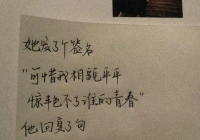 她发了个签名
“可惜我相貌平平
惊艳不了谁的青春”
他回复了句